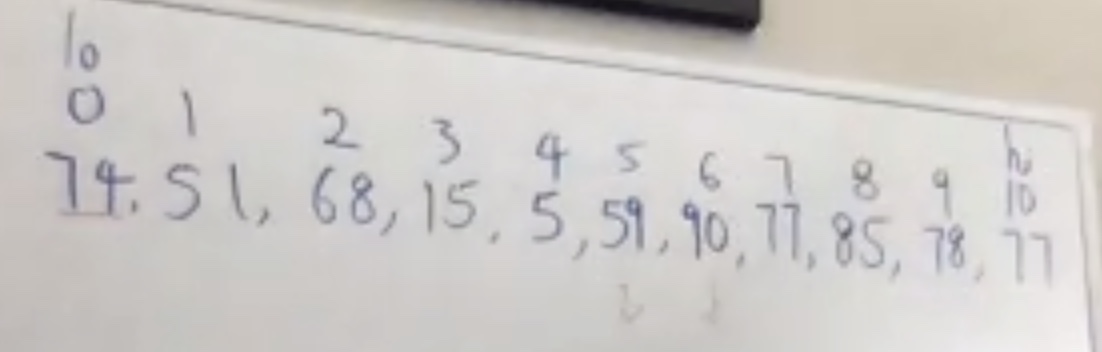 lo hi
0 1 2 3 4 5 6 7 8 9 10
74, 51, 68, 15, 5, 59, 90, 77, 85, 78, 77